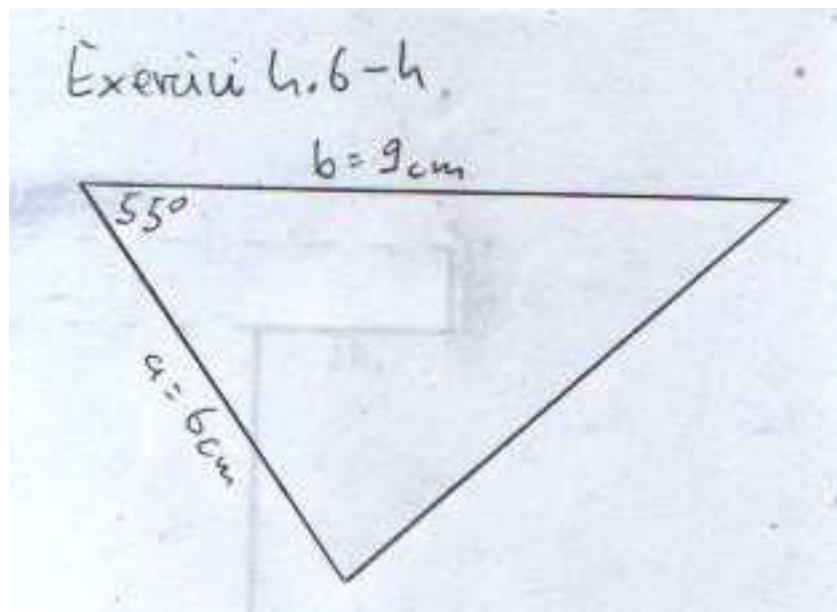 Exercici 4.6-4.
b = 9cm
55º
a = 6cm